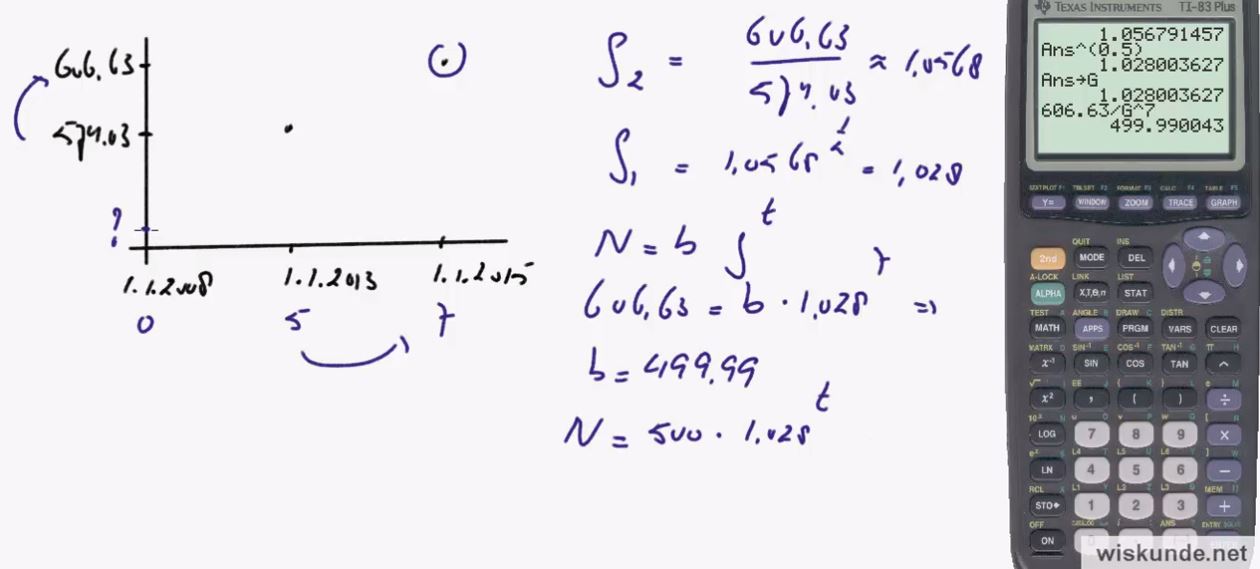 606.63
574.03
?
1.1.2008 1.1.2013 1.1.2015
0 5 7
g₂ = 606.63 / 574.03 ≈ 1.0568
g₁ = 1.0568^½ = 1.028
N = b g^t
606.63 = b · 1.028^7 ⇒
b = 499.99
N = 500 · 1.028^t
TEXAS INSTRUMENTS TI-83 Plus
1.056791457
Ans^(0.5)
1.028003627
Ans→G
1.028003627
606.63/G^7
499.990043
STAT PLOT F1 TBLSET F2 FORMAT F3 CALC F4 TABLE F5
Y= WINDOW ZOOM TRACE GRAPH
QUIT INS
2nd MODE DEL
A-LOCK LINK LIST
ALPHA X,T,θ,n STAT
TEST A ANGLE B DRAW C DISTR
MATH APPS PRGM VARS CLEAR
MATRX D SIN⁻¹ E COS⁻¹ F TAN⁻¹ G π H
x⁻¹ SIN COS TAN ^
√ I EE J { K } L e M
x² , ( ) ÷
10ˣ N u O v P w Q [ R
LOG 7 8 9 ×
eˣ S L4 T L5 U L6 V ] W
LN 4 5 6 −
RCL X L1 Y L2 Z L3 θ MEM "
STO▸ 1 2 3 +
OFF
ON
wiskunde.net